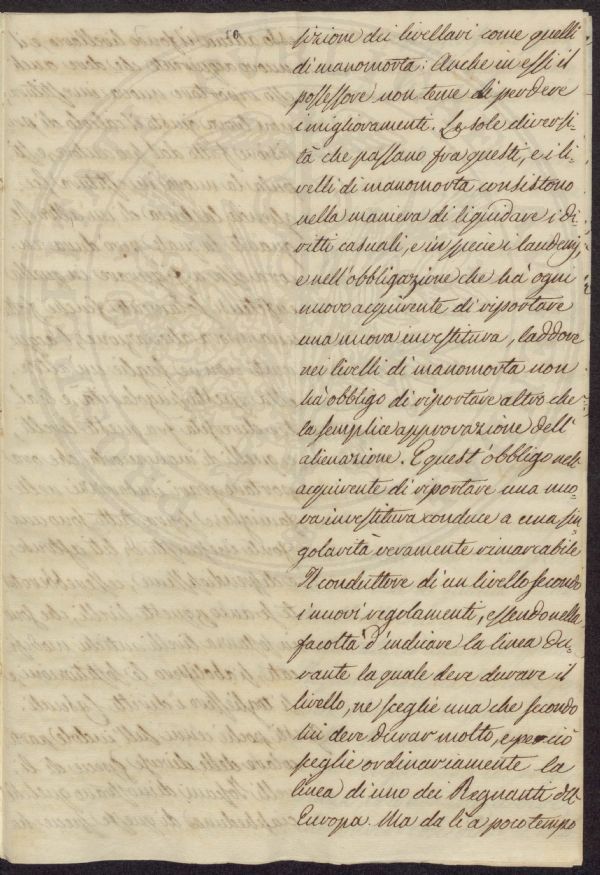 10
sizione dei livellari come quelli
di manomorta: Anche in essi il
possessore non teme di perdere
i miglioramenti. Le sole diversi-
tà che passano fra questi, e i li-
velli di manomorta consistono
nella maniera di liquidare i di-
ritti casuali, e in specie i laudemj,
e nell'obbligazione che hà ogni
nuovo acquirente di riportare
una nuova investitura, laddove
nei livelli di manomorta non
hà obbligo di riportare altro che
la semplice approvazione dell'
alienazione. E quest'obbligo nell'
acquirente di riportare una nuo-
va investitura conduce a una sin-
golarità veramente rimarcabile
Il conduttore di un livello secondo
i nuovi regolamenti, essendo nella
facoltà d'indicare la linea du-
rante la quale deve durare il
livello, ne sceglie una che secondo
lui deve durar molto, e perciò
sceglie ordinariamente la
linea di uno dei Regnanti dell'
Europa. Ma da li a poco tempo